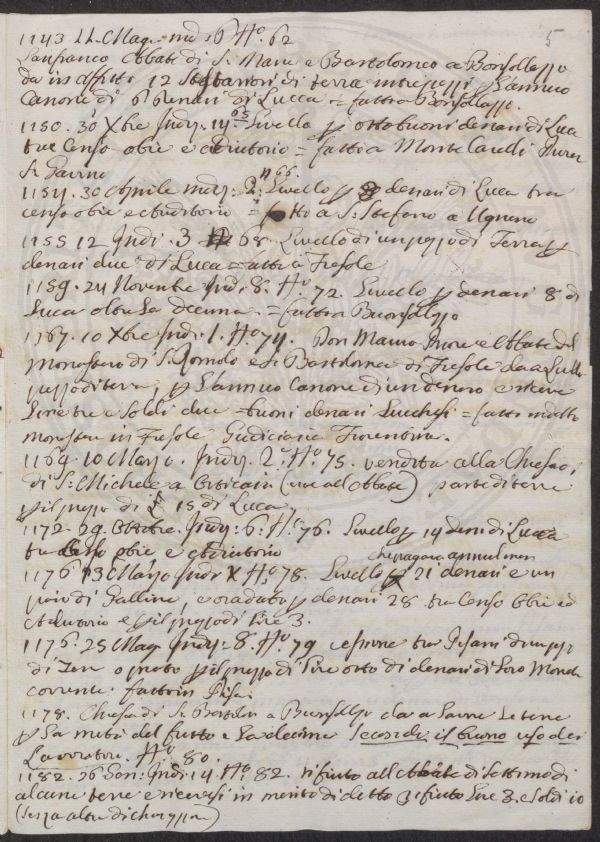 5
1143 22 Mag. indi 6 Ho. 62
Lanfranco Abbate di S. Maria e Bartolomeo a Bonsollazzo
da in affitto 12 di terra in per l'annuo
Canone di 6 Denari di Lucca = fatto a Bonsollazzo.
1150. 30 Xbre Indiz. 14. 63 Livello p otto buoni denari di Luca
tra Censo obie e Aditorio = fatto a Monte
S. Gavino
1154. 30 Aprile indiz. 2. n 66. Livello p 8 denari di Luca tra
censo obie e = fatto a S. Stefano a Ugnano
1155 12 Indi. 3 68. Livello di un pezzo di Terra p
denari due di Luca = fatto a Fiesole
1159. 24 Novembre Indi. 8. Ho. 72. Livello p denari 8 di
Luca oltre La decima. = fatto a Buonsollazzo
1167. 10 Xbre Indi. 1. Ho. 74. Don Mauro Priore e Abbate del
monastero di S. Romolo e S. Bartolomeo di Fiesole da a Livello
pezzo di terra p L'annuo Canone di un denaro e riceve
Lire tre e Soldi due = buoni denari Lucchesi = fatto in detto
monastero in Fiesole Giudiciaria Fiorentina.
1169. 10 Marzo. Indiz. 2a Ho. 75. vendita alla Chiesa
di S. Michele a (vive all'Abbate) parte di terre
p il prezzo di £ 15 di Luca.
1172. 29. Ottobre. Indiz. 6. Ho. 76. Livello p 14 denari di Lucca
tra Censo obie e Aditorio
che pagava annualmen
1176 13 Marzo Indi X Ho. 78. Livello p 21 denari e un
paio di Galline, e p denari 28 tra Censo Obie ed
Adiutorio e p il prezzo di Lire 3.
1176. 25 Mag. Indiz. 8. Ho. 79 cessione tra Pisani di un pezzo
di Terra o prato p il prezzo di Lire otto di denari di Loro Moneta
corrente fatto in Pisa.
1178. Chiesa di S. Bartolo a Buonsollazzo da a Lavorare Le terre
p La metà del frutto e La decima secondo il buono uso dei
Lavoratori. Ho. 80.
1182. 26 Gen. Indi. 14. Ho. 82. rifiuto all'Abbate di Settimo di
alcune terre e ricevesi in merito di detto rifiuto Lire 3. e Soldi 10
(senza altra dichiarazione)